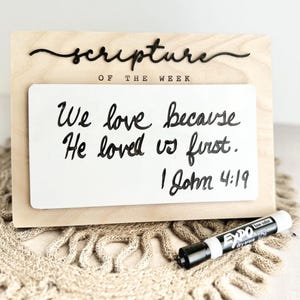 scripture
OF THE WEEK
We love because
He loved us first.
1 John 4:19
EXPO